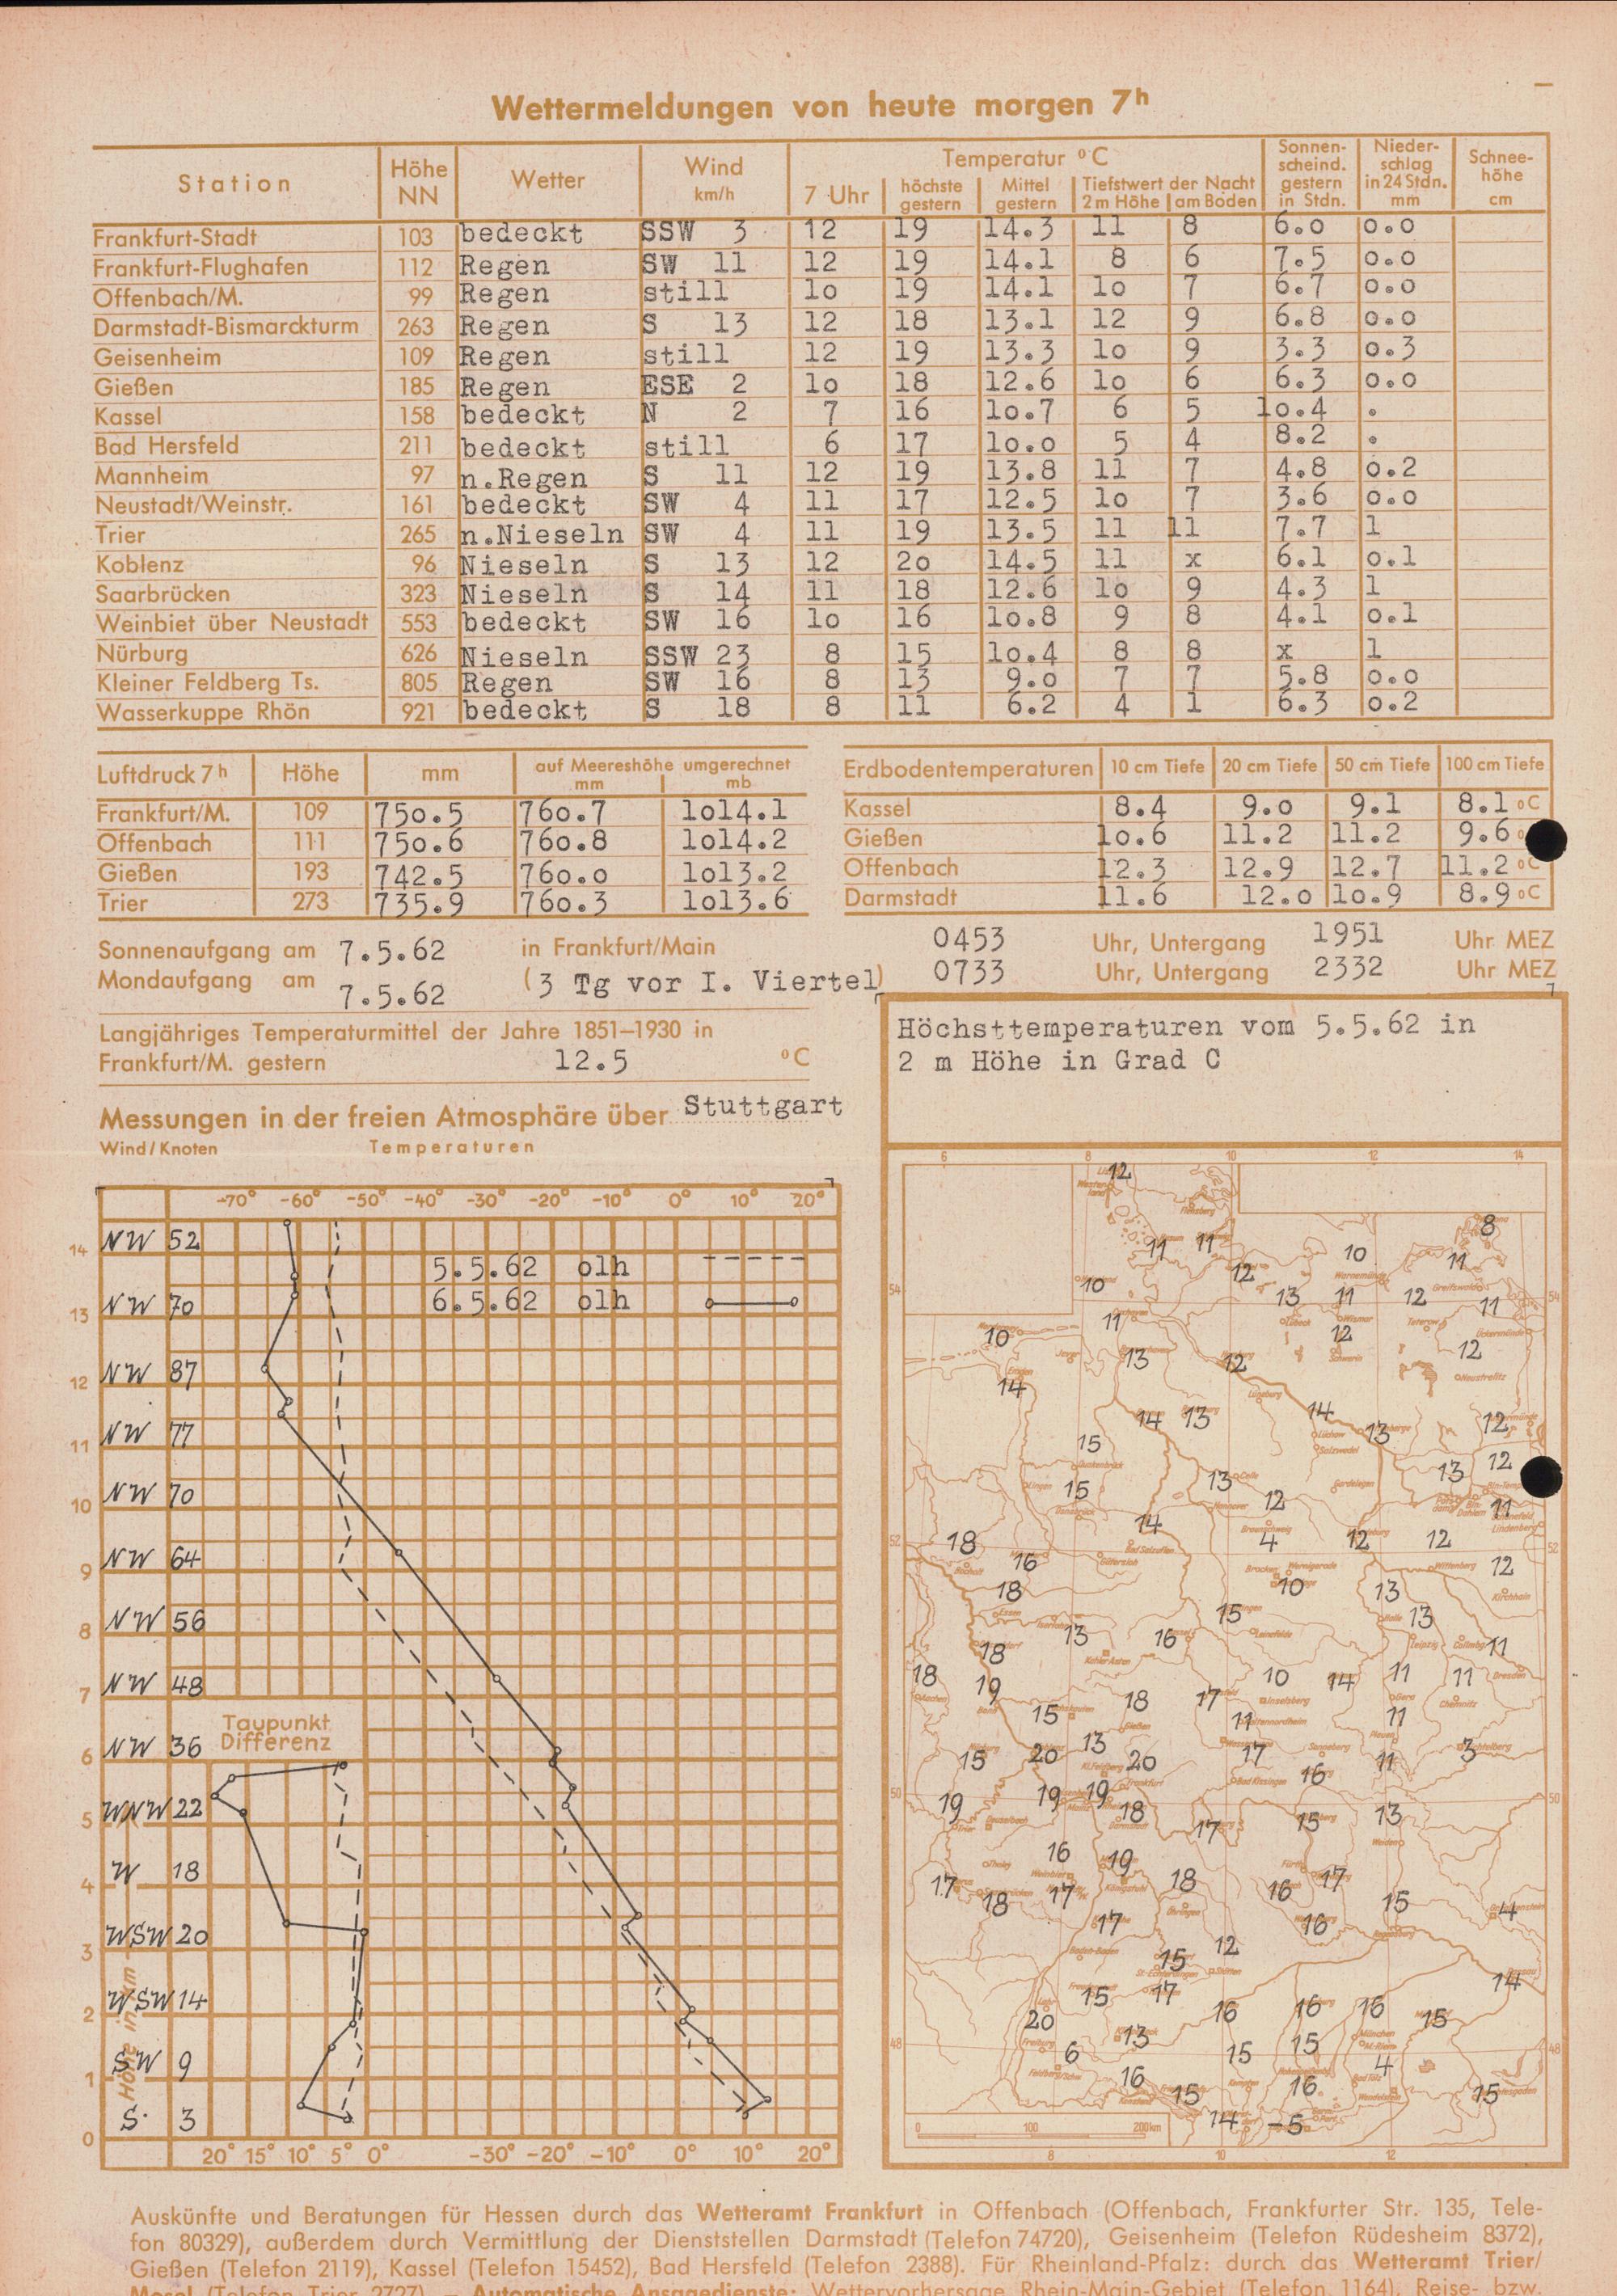 Wettermeldungen von heute morgen 7h
Station Höhe NN Wetter Wind km/h Temperatur °C Sonnenscheind. gestern in Stdn. Niederschlag in 24 Stdn. mm Schneehöhe cm
7 Uhr höchste gestern Mittel gestern Tiefstwert der Nacht 2m Höhe am Boden
Frankfurt-Stadt 103 bedeckt SSW 3 12 19 14.3 11 8 6.0 0.0
Frankfurt-Flughafen 112 Regen SW 11 12 19 14.1 8 6 7.5 0.0
Offenbach/M. 99 Regen still 10 19 14.1 10 7 6.7 0.0
Darmstadt-Bismarckturm 263 Regen S 13 12 18 13.1 12 9 6.8 0.0
Geisenheim 109 Regen still 12 19 13.3 10 9 3.3 0.3
Gießen 185 Regen ESE 2 10 18 12.6 10 6 6.3 0.0
Kassel 158 bedeckt N 2 7 16 10.7 6 5 10.4 .
Bad Hersfeld 211 bedeckt still 6 17 10.0 5 4 8.2 .
Mannheim 97 n.Regen S 11 12 19 13.8 11 7 4.8 0.2
Neustadt/Weinstr. 161 bedeckt SW 4 11 17 12.5 10 7 3.6 0.0
Trier 265 n.Nieseln SW 4 11 19 13.5 11 11 7.7 1
Koblenz 96 Nieseln S 13 12 20 14.5 11 x 6.1 0.1
Saarbrücken 323 Nieseln S 14 11 18 12.6 10 9 4.3 1
Weinbiet über Neustadt 553 bedeckt SW 16 10 16 10.8 9 8 4.1 0.1
Nürburg 626 Nieseln SSW 23 8 15 10.4 8 8 x 1
Kleiner Feldberg Ts. 805 Regen SW 16 8 13 9.0 7 7 5.8 0.0
Wasserkuppe Rhön 921 bedeckt S 18 8 11 6.2 4 1 6.3 0.2
Luftdruck 7h Höhe mm auf Meereshöhe umgerechnet mm mb
Frankfurt/M. 109 750.5 760.7 1014.1
Offenbach 111 750.6 760.8 1014.2
Gießen 193 742.5 760.0 1013.2
Trier 273 735.9 760.3 1013.6
Erdbodentemperaturen 10 cm Tiefe 20 cm Tiefe 50 cm Tiefe 100 cm Tiefe
Kassel 8.4 9.0 9.1 8.1 °C
Gießen 10.6 11.2 11.2 9.6
Offenbach 12.3 12.9 12.7 11.2 °C
Darmstadt 11.6 12.0 10.9 8.9 °C
Sonnenaufgang am 7.5.62 in Frankfurt/Main 0453 Uhr, Untergang 1951 Uhr MEZ
Mondaufgang am 7.5.62 (3 Tg vor I. Viertel) 0733 Uhr, Untergang 2332 Uhr MEZ
Langjähriges Temperaturmittel der Jahre 1851–1930 in
Frankfurt/M. gestern 12.5 °C
Höchsttemperaturen vom 5.5.62 in
2 m Höhe in Grad C
Messungen in der freien Atmosphäre über Stuttgart
Wind/Knoten Temperaturen
-70° -60° -50° -40° -30° -20° -10° 0° 10° 20°
14 NW 52
5.5.62 01h
6.5.62 01h
13 NW 70
12 NW 87
11 NW 77
10 NW 70
9 NW 64
8 NW 56
7 NW 48
Taupunkt Differenz
6 NW 36
5 WNW 22
4 W 18
3 WSW 20
2 WSW 14
1 SW 9
S 3
0
Höhe in km
20° 15° 10° 5° 0° -30° -20° -10° 0° 10° 20°
6 8 10 12 14
12
8
11 11 10 11
10 12
54 13 11 12 11 54
10 11 12 12
13 12
14
14 13 14 13 12
15
15 13 12 13 12
14 11
52 18 16 4 12 12 12 52
18 10 13
15 13
18 13 16 11
18 19 10 14 11 11
15 18 17 11 11
15 20 13 20 17 16 11 3
50 19 19 19 18 17 15 13 50
16 19 18 17
17 18 17 16 15 4
17 16
15 12
15 17 14
20 13 16 16 16 15
48 6 15 15 4 48
16 15 16 15
14 -5
0 100 200km
8 10 12
Auskünfte und Beratungen für Hessen durch das Wetteramt Frankfurt in Offenbach (Offenbach, Frankfurter Str. 135, Tele-
fon 80329), außerdem durch Vermittlung der Dienststellen Darmstadt (Telefon 74720), Geisenheim (Telefon Rüdesheim 8372),
Gießen (Telefon 2119), Kassel (Telefon 15452), Bad Hersfeld (Telefon 2388). Für Rheinland-Pfalz: durch das Wetteramt Trier/
Mosel (Telefon Trier 2727). — Automatische Ansagedienste: Wettervorhersage Rhein-Main-Gebiet (Telefon 1164), Reise- bzw.